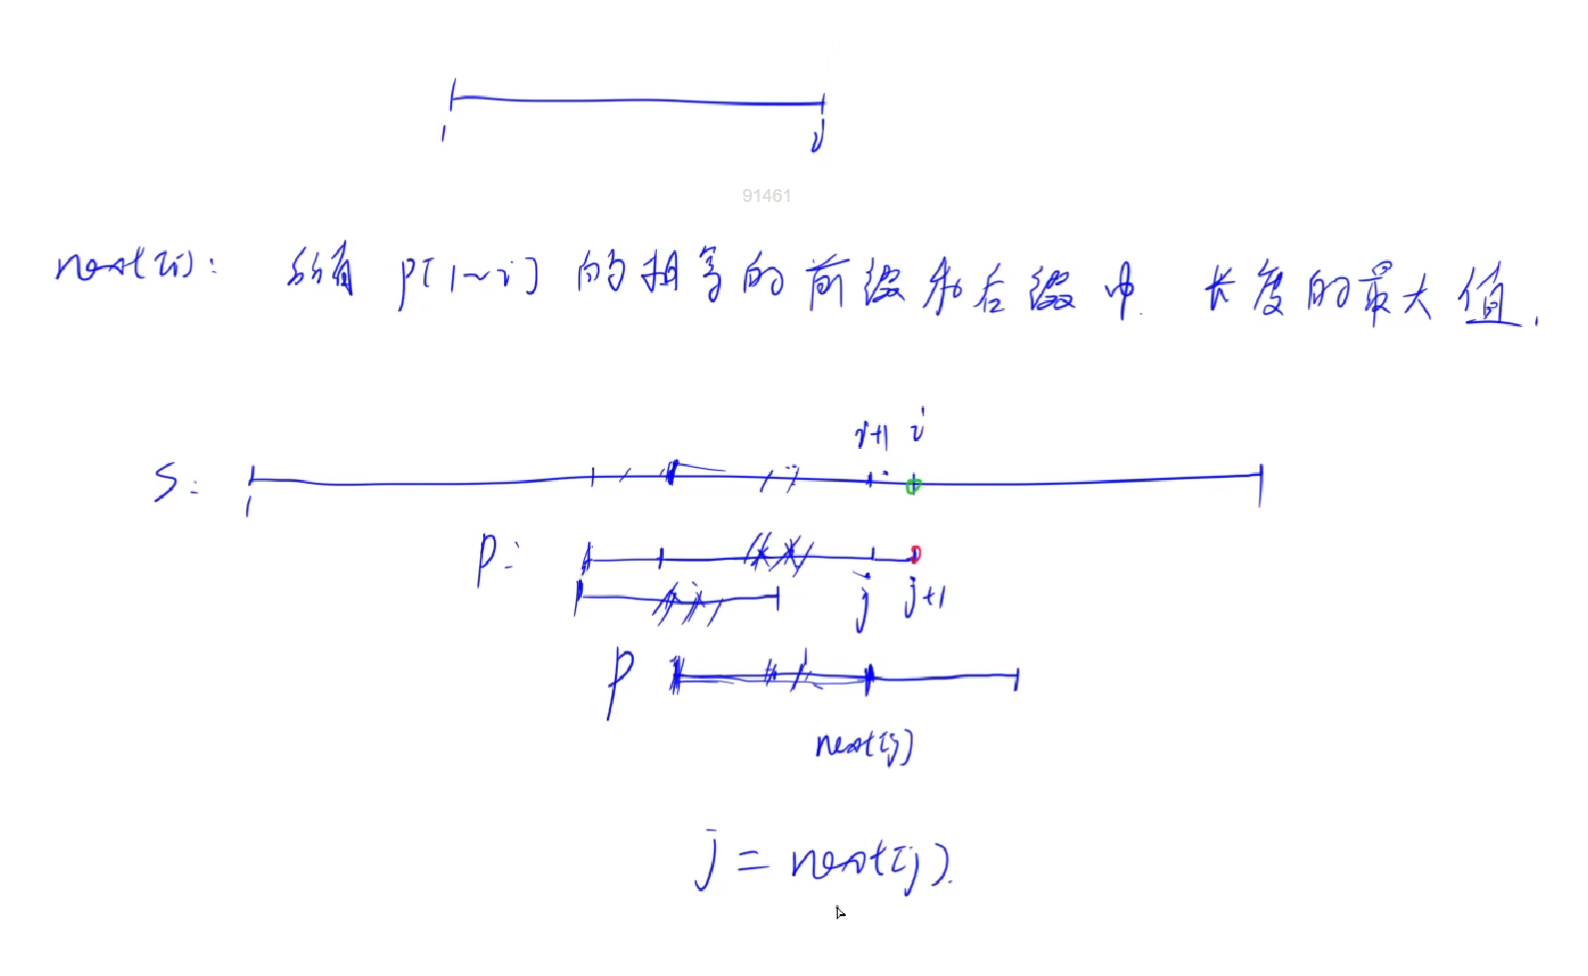 1 i
91461
next[i]: 所有 p[1~i] 的相等的前缀和后缀中 长度的最大值.
i-1 i
S:
1
P:
j j+1
P
next[j]
j = next[j].